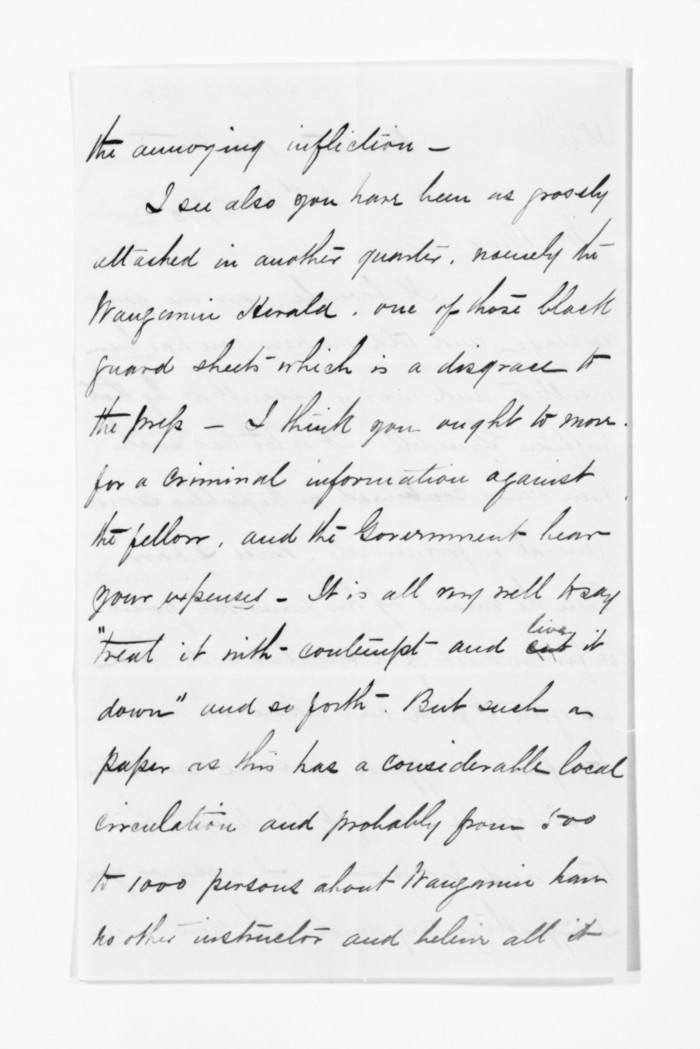 the annoying infliction —
I see also you have been as grossly
attacked in another quarter, namely the
Wanganui Herald, one of those black
guard sheets which is a disgrace to
the press — I think you ought to move
for a criminal information against
the fellow, and the Government bear
your expenses — It is all very well to say
"treat it with contempt and live it
down" and so forth. But such a
paper as this has a considerable local
circulation and probably from 500
to 1000 persons about Wanganui have
no other instructor and believe all it